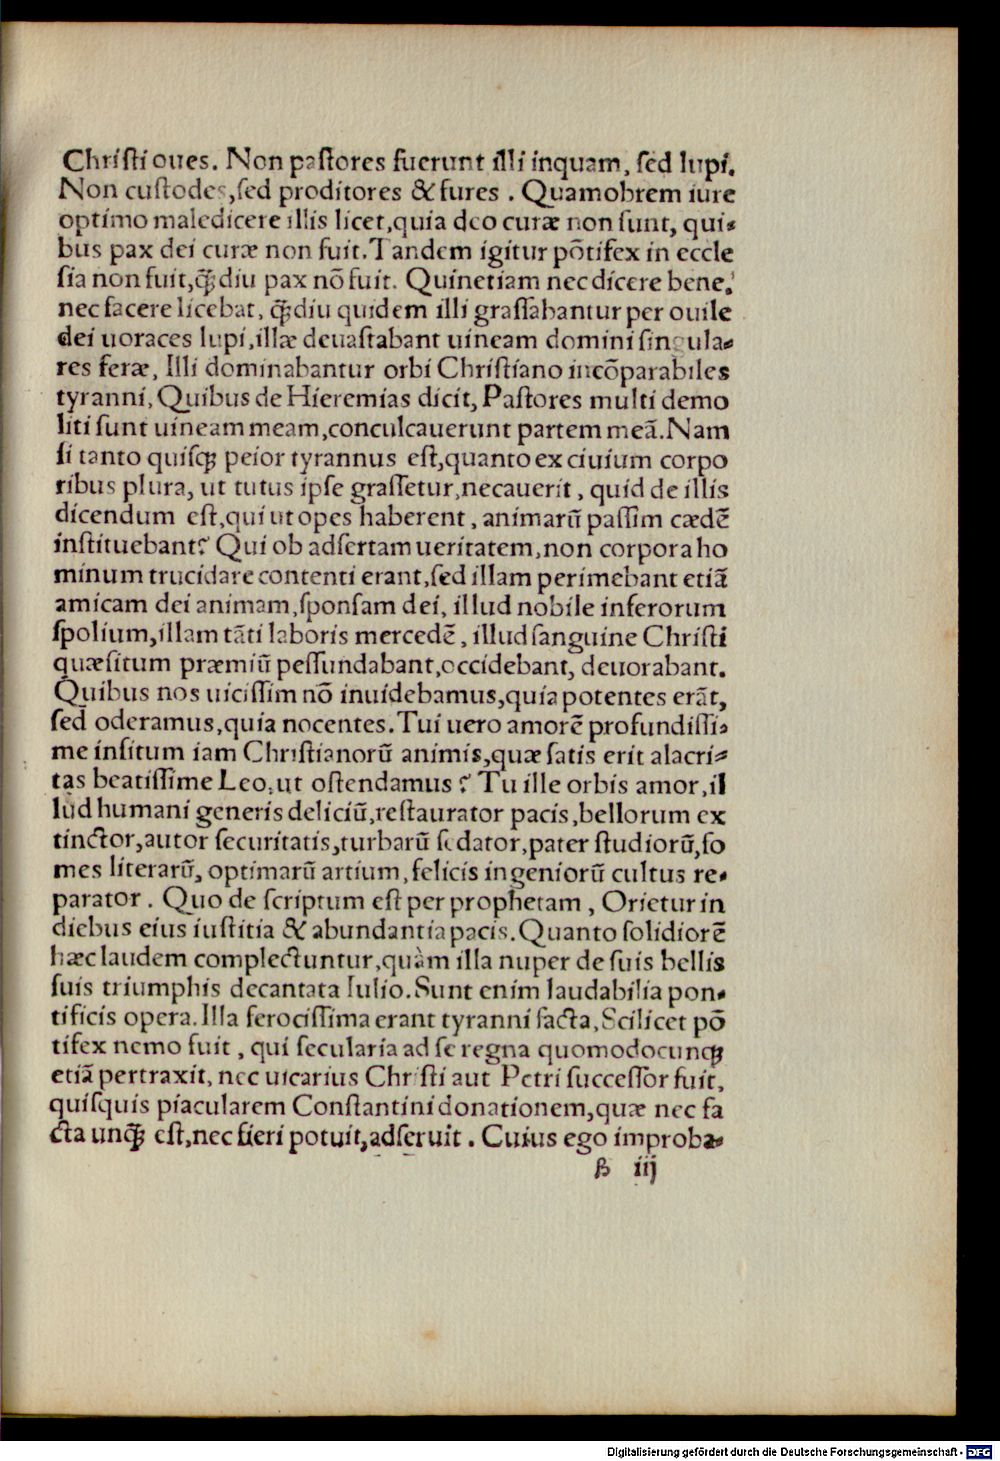 Chriſti oues. Non paſtores fuerunt illi inquam, ſed lupi.
Non cuſtodes, ſed proditores & fures. Quamobrem iure
optimo maledicere illis licet, quia deo curæ non ſunt, qui-
bus pax dei curæ non fuit. Tandem igitur põtifex in eccle
ſia non fuit, ꝗ̃diu pax nõ fuit. Quinetiam nec dicere bene,
nec facere licebat, ꝗ̃diu quidem illi graſſabantur per ouile
dei uoraces lupi, illæ deuaſtabant uineam domini ſingula-
res feræ, Illi dominabantur orbi Chriſtiano incõparabiles
tyranni, Quibus de Hieremias dicit, Paſtores multi demo
liti ſunt uineam meam, conculcauerunt partem meã. Nam
ſi tanto quiſqꝫ peior tyrannus eſt, quanto ex ciuium corpo
ribus plura, ut tutus ipſe graſſetur, necauerit, quid de illis
dicendum eſt, qui ut opes haberent, animarũ paſſim cædẽ
inſtituebant? Qui ob adſertam ueritatem, non corpora ho
minum trucidare contenti erant, ſed illam perimebant etiã
amicam dei animam, ſponſam dei, illud nobile inferorum
ſpolium, illam tãti laboris mercedẽ, illud ſanguine Chriſti
quæſitum præmiũ peſſundabant, occidebant, deuorabant.
Quibus nos uiciſſim nõ inuidebamus, quia potentes erãt,
ſed oderamus, quia nocentes. Tui uero amorẽ profundiſſi-
me inſitum iam Chriſtianorũ animis, quæ ſatis erit alacri-
tas beatiſſime Leo, ut oſtendamus? Tu ille orbis amor, il
lud humani generis deliciũ, reſtaurator pacis, bellorum ex
tinctor, autor ſecuritatis, turbarũ ſedator, pater ſtudiorũ, fo
mes literarũ, optimarũ artium, felicis ingeniorũ cultus re-
parator. Quo de ſcriptum eſt per prophetam, Orietur in
diebus eius iuſtitia & abundantia pacis. Quanto ſolidiorẽ
hæc laudem complectuntur, quàm illa nuper de ſuis bellis
ſuis triumphis decantata Iulio. Sunt enim laudabilia pon-
tificis opera. Illa ferociſſima erant tyranni facta, Scilicet põ
tifex nemo fuit, qui ſecularia ad ſe regna quomodocunqꝫ
etiã pertraxit, nec uicarius Chriſti aut Petri ſucceſſor fuit,
quiſquis piacularem Conſtantini donationem, quæ nec fa
cta unꝗ̃ eſt, nec fieri potuit, adſeruit. Cuius ego improba-
ß iij
Digitalisierung gefördert durch die Deutsche Forschungsgemeinschaft - DFG